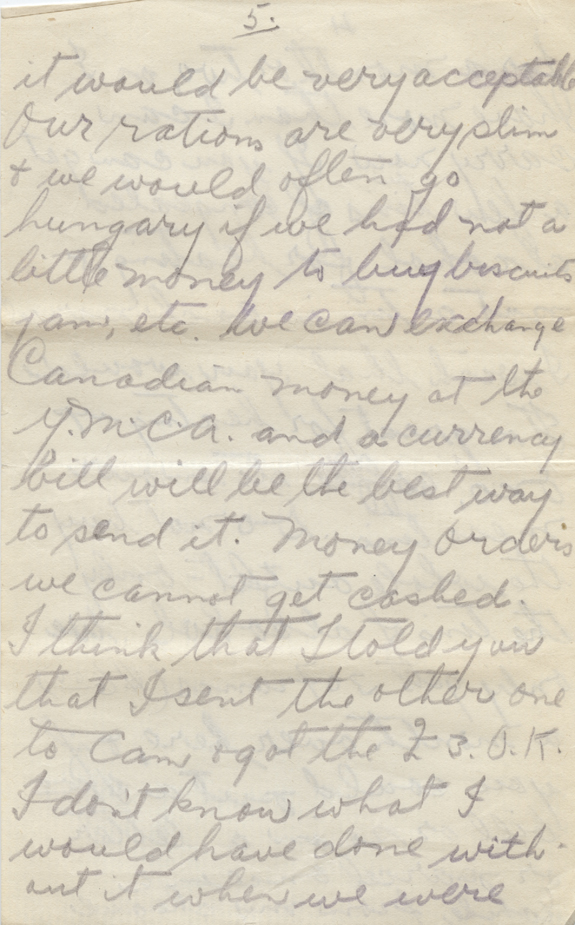 5.
it would be very acceptable
Our rations are very slim
& we would often go
hungary if we had not a
little money to buy biscuits
jam, etc. We can exchange
Canadian money at the
Y.M.C.A. and a currency
bill will be the best way
to send it. Money Orders
we cannot get cashed.
I think that I told you
that I sent the other one
to Cam & got the £3. O.K.
I don't know what I
would have done with-
out it when we were